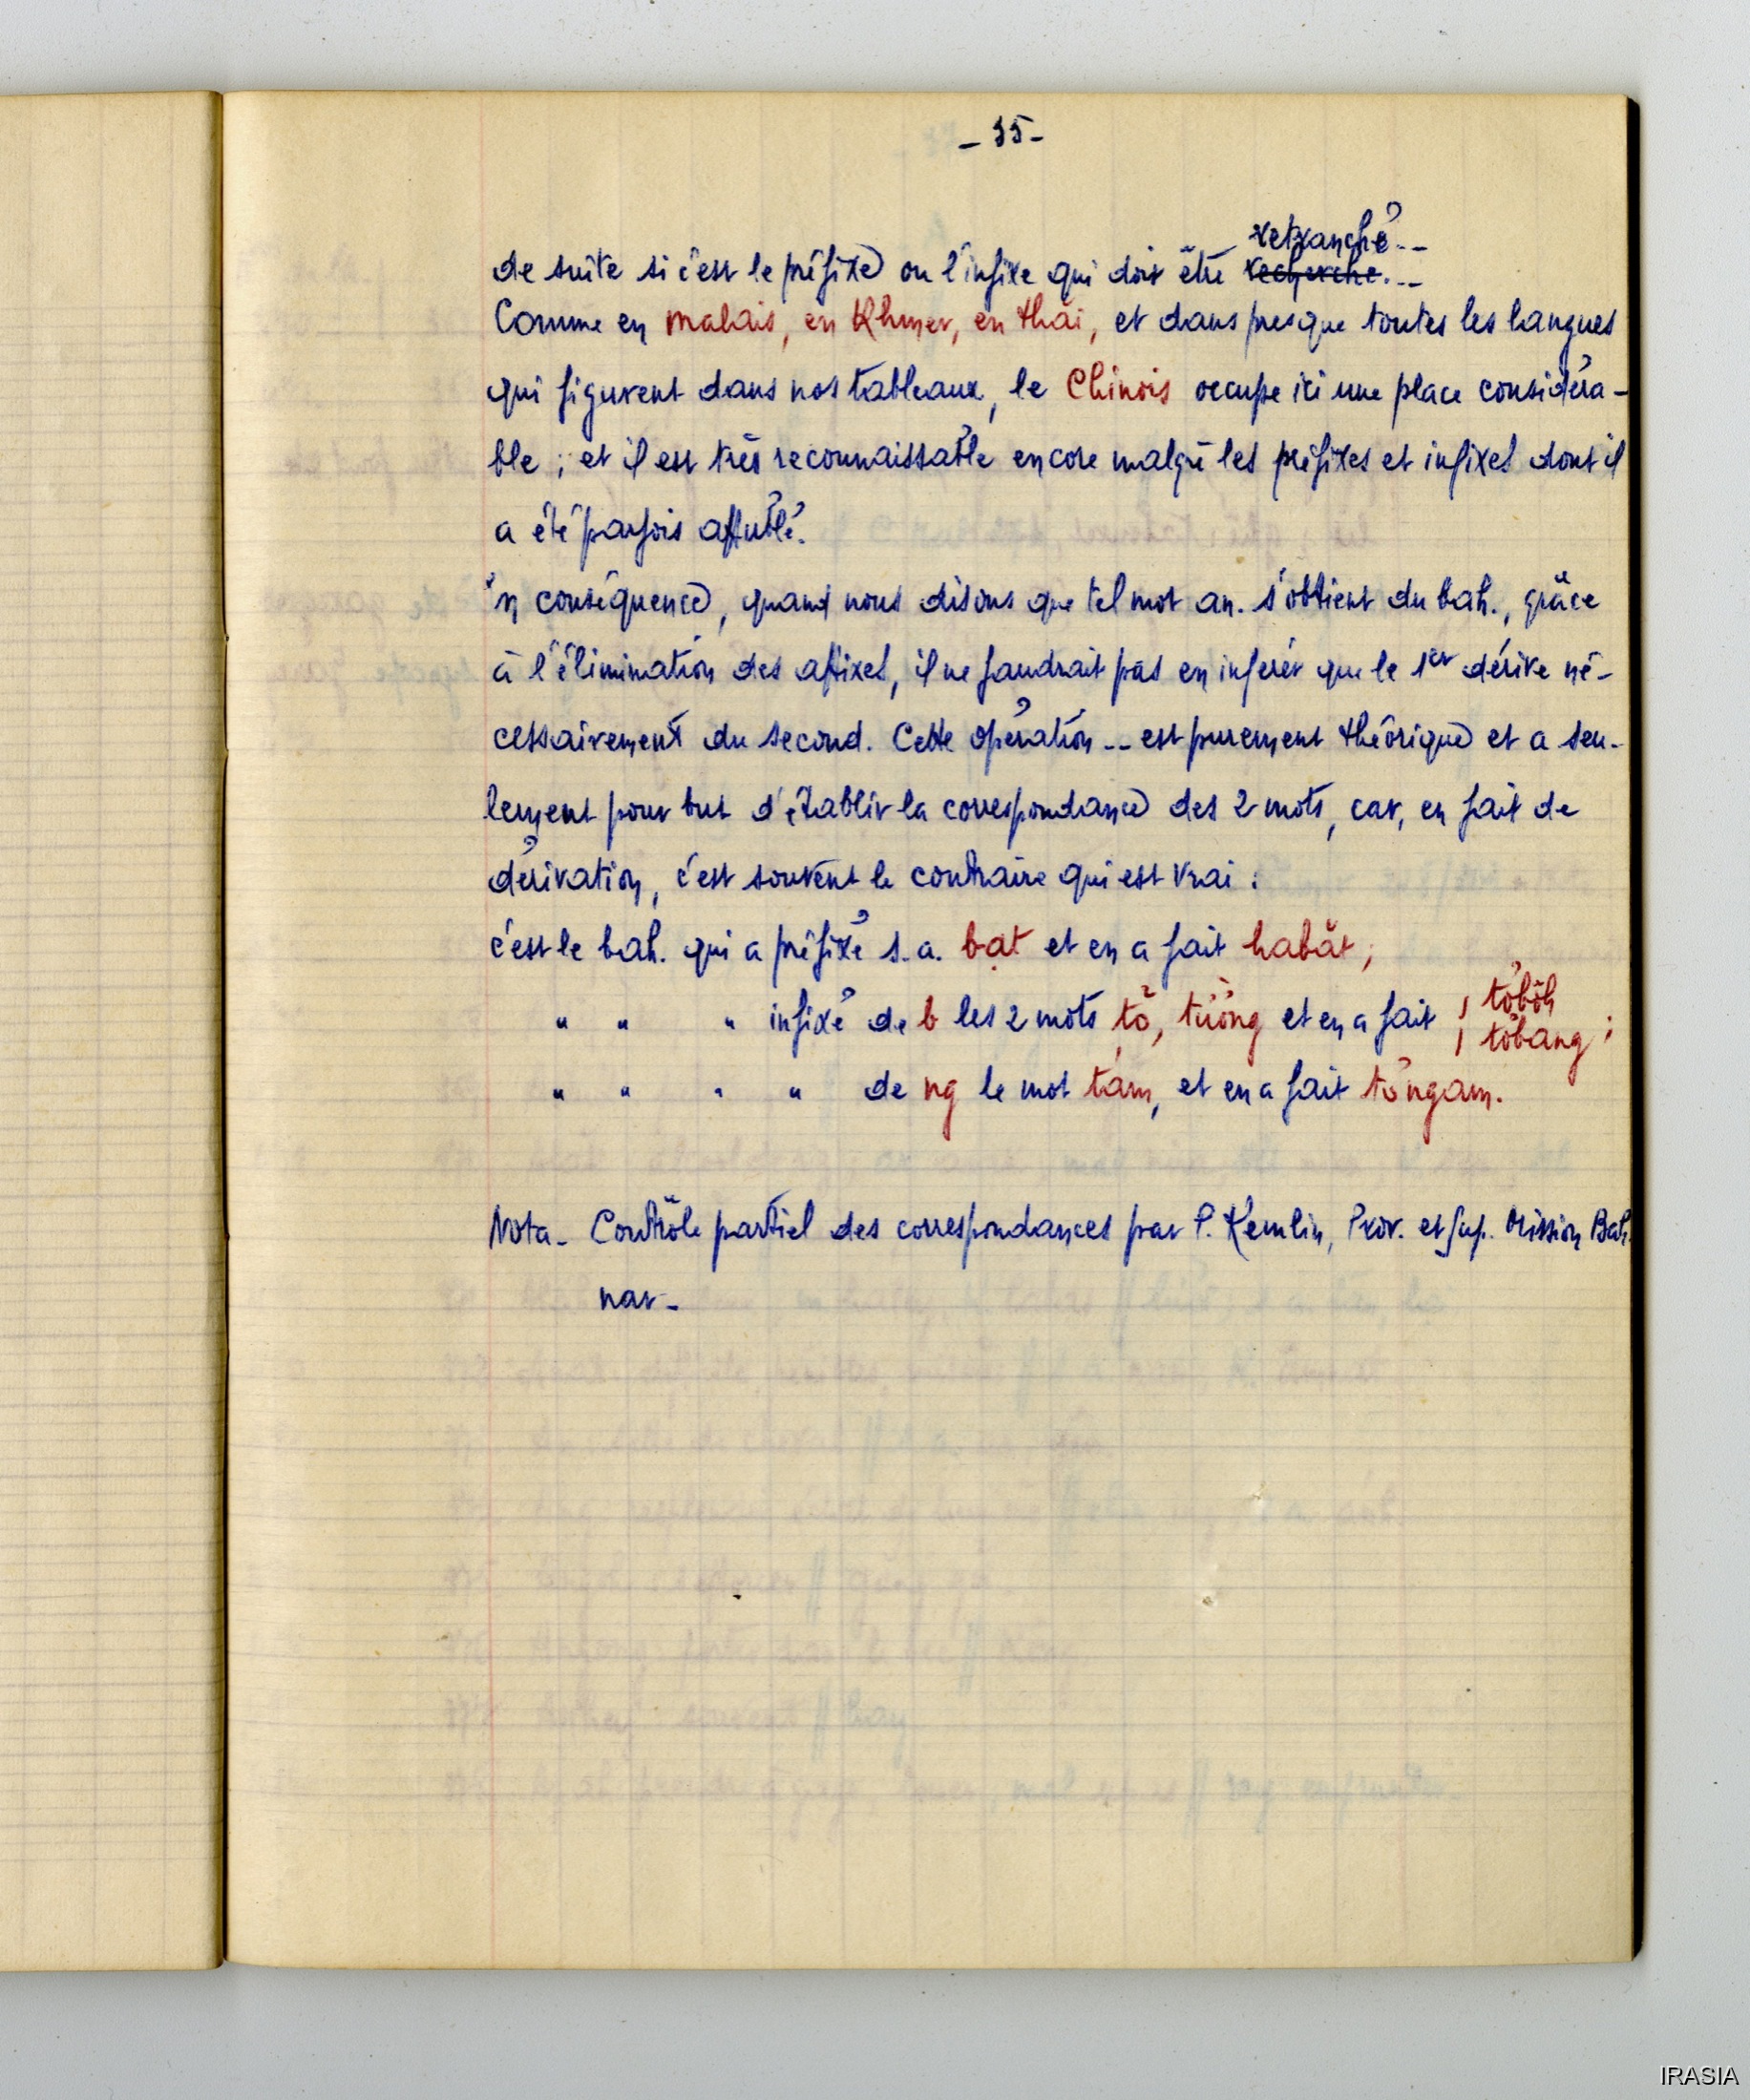 - 35 -
retranché --
de suite si c'est le préfixe ou l'infixe qui doit être recherché. --
Comme en malais, en Khmer, en thăi, et dans presque toutes les langues
qui figurent dans nos tableaux, le Chinois occupe ici une place considéra-
ble ; et il est très reconnaissable encore malgré les préfixes et infixes dont il
a été parfois affublé.
'n conséquence, quand nous disons que tel mot an. s'obtient du bah., grâce
à l'élimination des affixes, il ne faudrait pas en inférer que le 1er dérive né-
cessairement du second. Cette opération -- est purement théorique et a seu-
lement pour but d'établir la correspondance des 2 mots, car, en fait de
dérivation, c'est souvent le contraire qui est vrai :
c'est le bah. qui a préfixé s.a. bạt et en a fait habăt ;
" " " infixé de b les 2 mots tỏ, tường et en a fait tơbôh
tơbang ;
" " " " de ng le mot tám, et en a fait tơngam.
Nota - Contrôle partiel des correspondances par P. Kemlin, Prov. et Sup. Mission Bah-
nar -
IRASIA